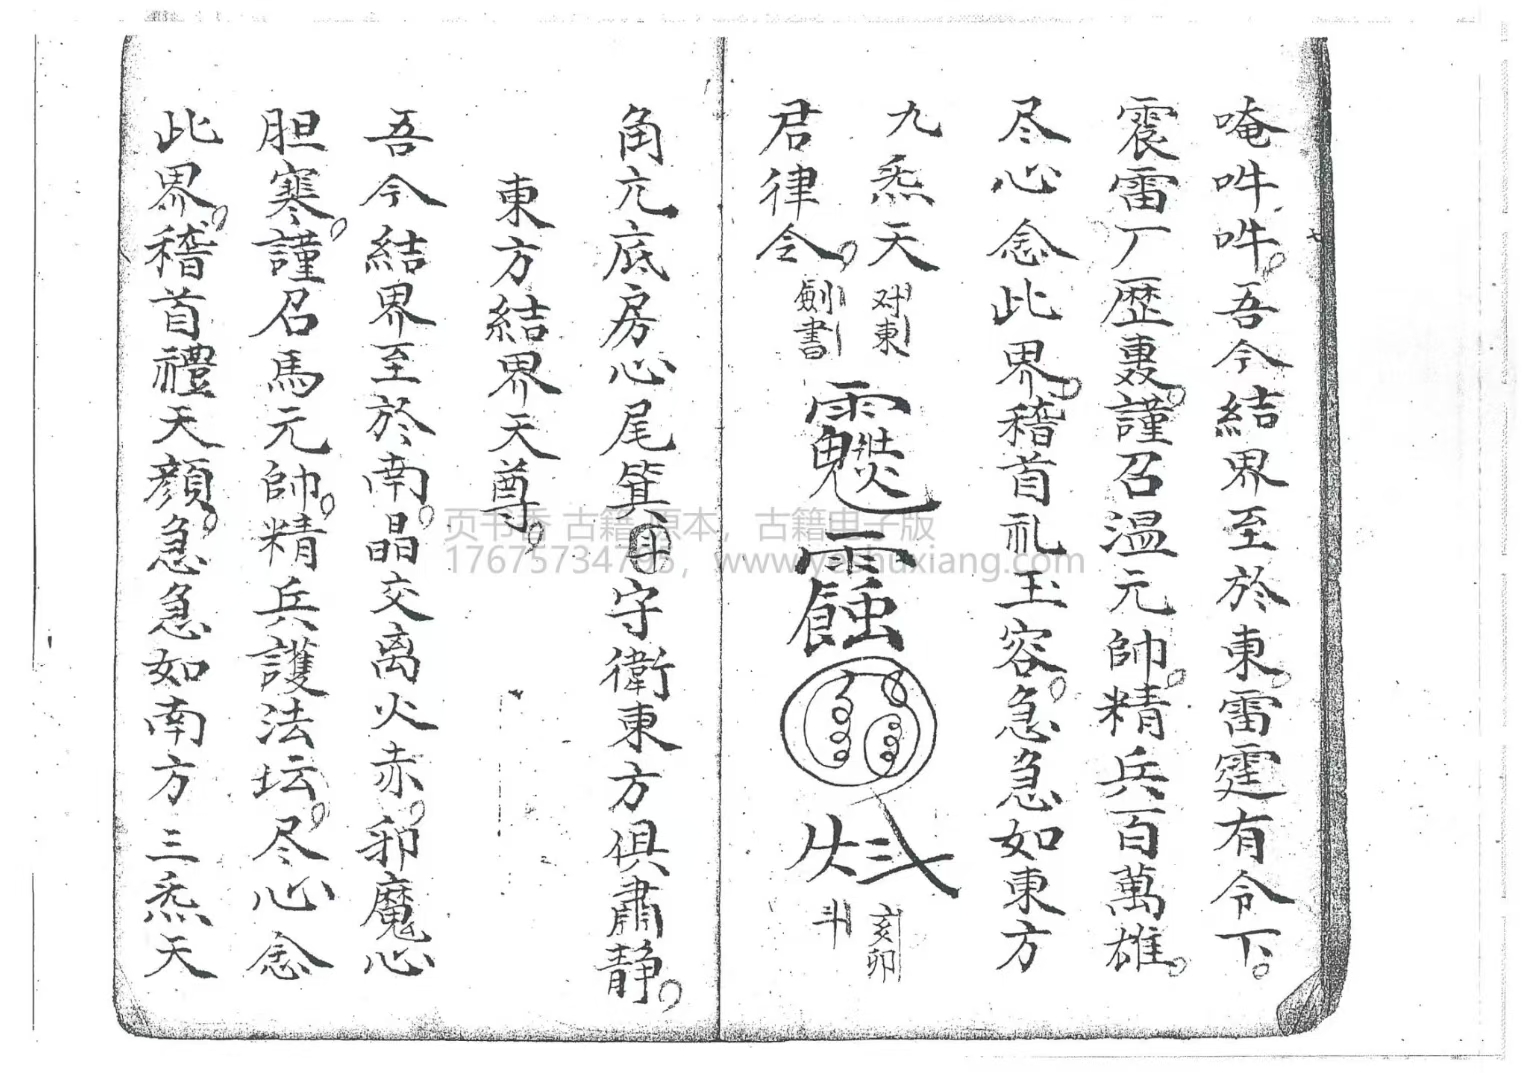 唵吽吽。吾今結界至於東。雷霆有令下。
震雷厂歷轟。謹召温元帥。精兵百萬雄。
尽心念此界。稽首礼玉容。急急如東方
九炁天
君律令。
对東
劍書
亥卯
斗
角亢底房心尾箕 守衛東方俱肅静。
東方結界天尊。
吾今結界至於南。晶交离火赤。邪魔心
胆寒。謹召馬元帥。精兵護法坛。尽心念
此界。稽首禮天顏。急急如南方三炁天
页书香 古籍 原本，古籍电子版
17675734793，www.yeshuxiang.com